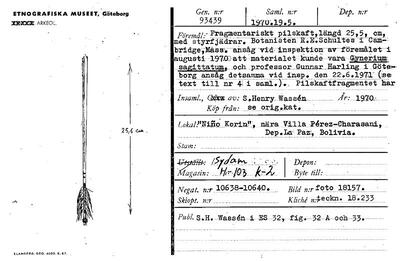 ETNOGRAFISKA MUSEET, Göteborg
ARKEOL.
25,6 cm.
ELANDERS
Gen. nr
93439
Saml. nr
1970.19.5.
Dep. nr
Föremål: Fragmentariskt pilskaft, längd 25,5, cm,
med styrfjädrar. Botanisten R.E.Schultes i Cam-
bridge,Mass. ansåg vid inspektion av föremålet i
augusti 1970 att materialet kunde vara Gynerium
sagittatum, och professor Gunnar Harling i Göte-
borg ansåg detsamma vid insp. den 22.6.1971 (se
text till nr 4 i saml.). Pilskaftfragmentet har
Insaml. av: S.Henry Wassén
År: 1970
Köp från: se orig.kat.
Lokal: "Niño Korin", nära Villa Pérez-Charasani,
Dep.La Paz, Bolivia.
Stam:
Utställt: Sydam
Depon:
Magasin: Hr 103 K-2
Byte till:
Negat. nr 10638-10640.
Bild nr foto 18157.
Skiopt. nr
Kliché nr teckn. 18.233
Publ. S.H. Wassén i ES 32, fig. 32 A och 33.